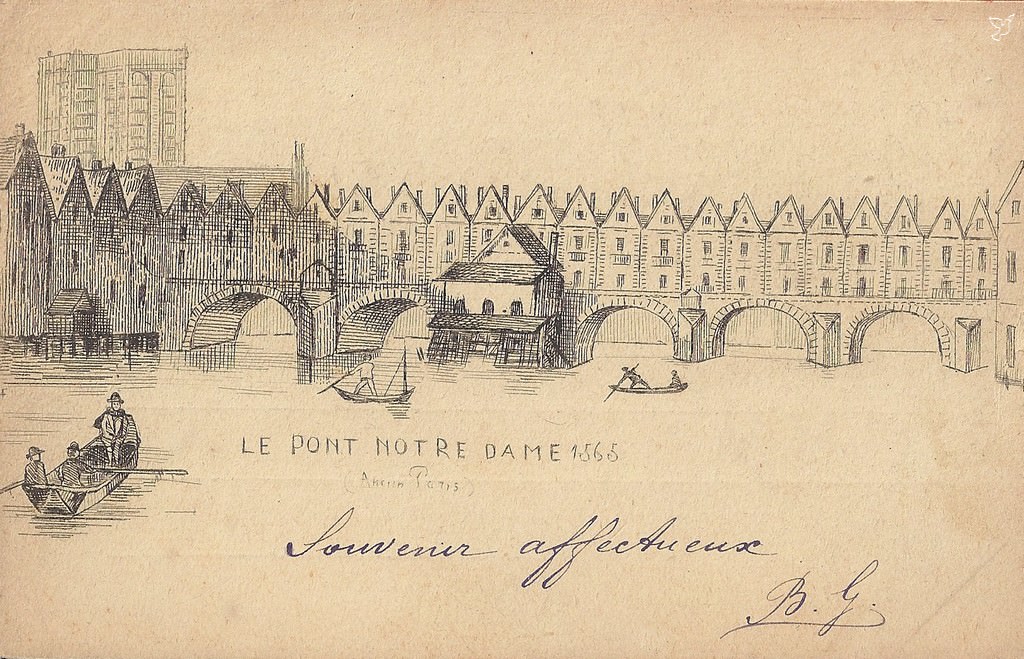 LE PONT NOTRE DAME 1565
(Ancien Paris)
Souvenir affectueux
B. G.